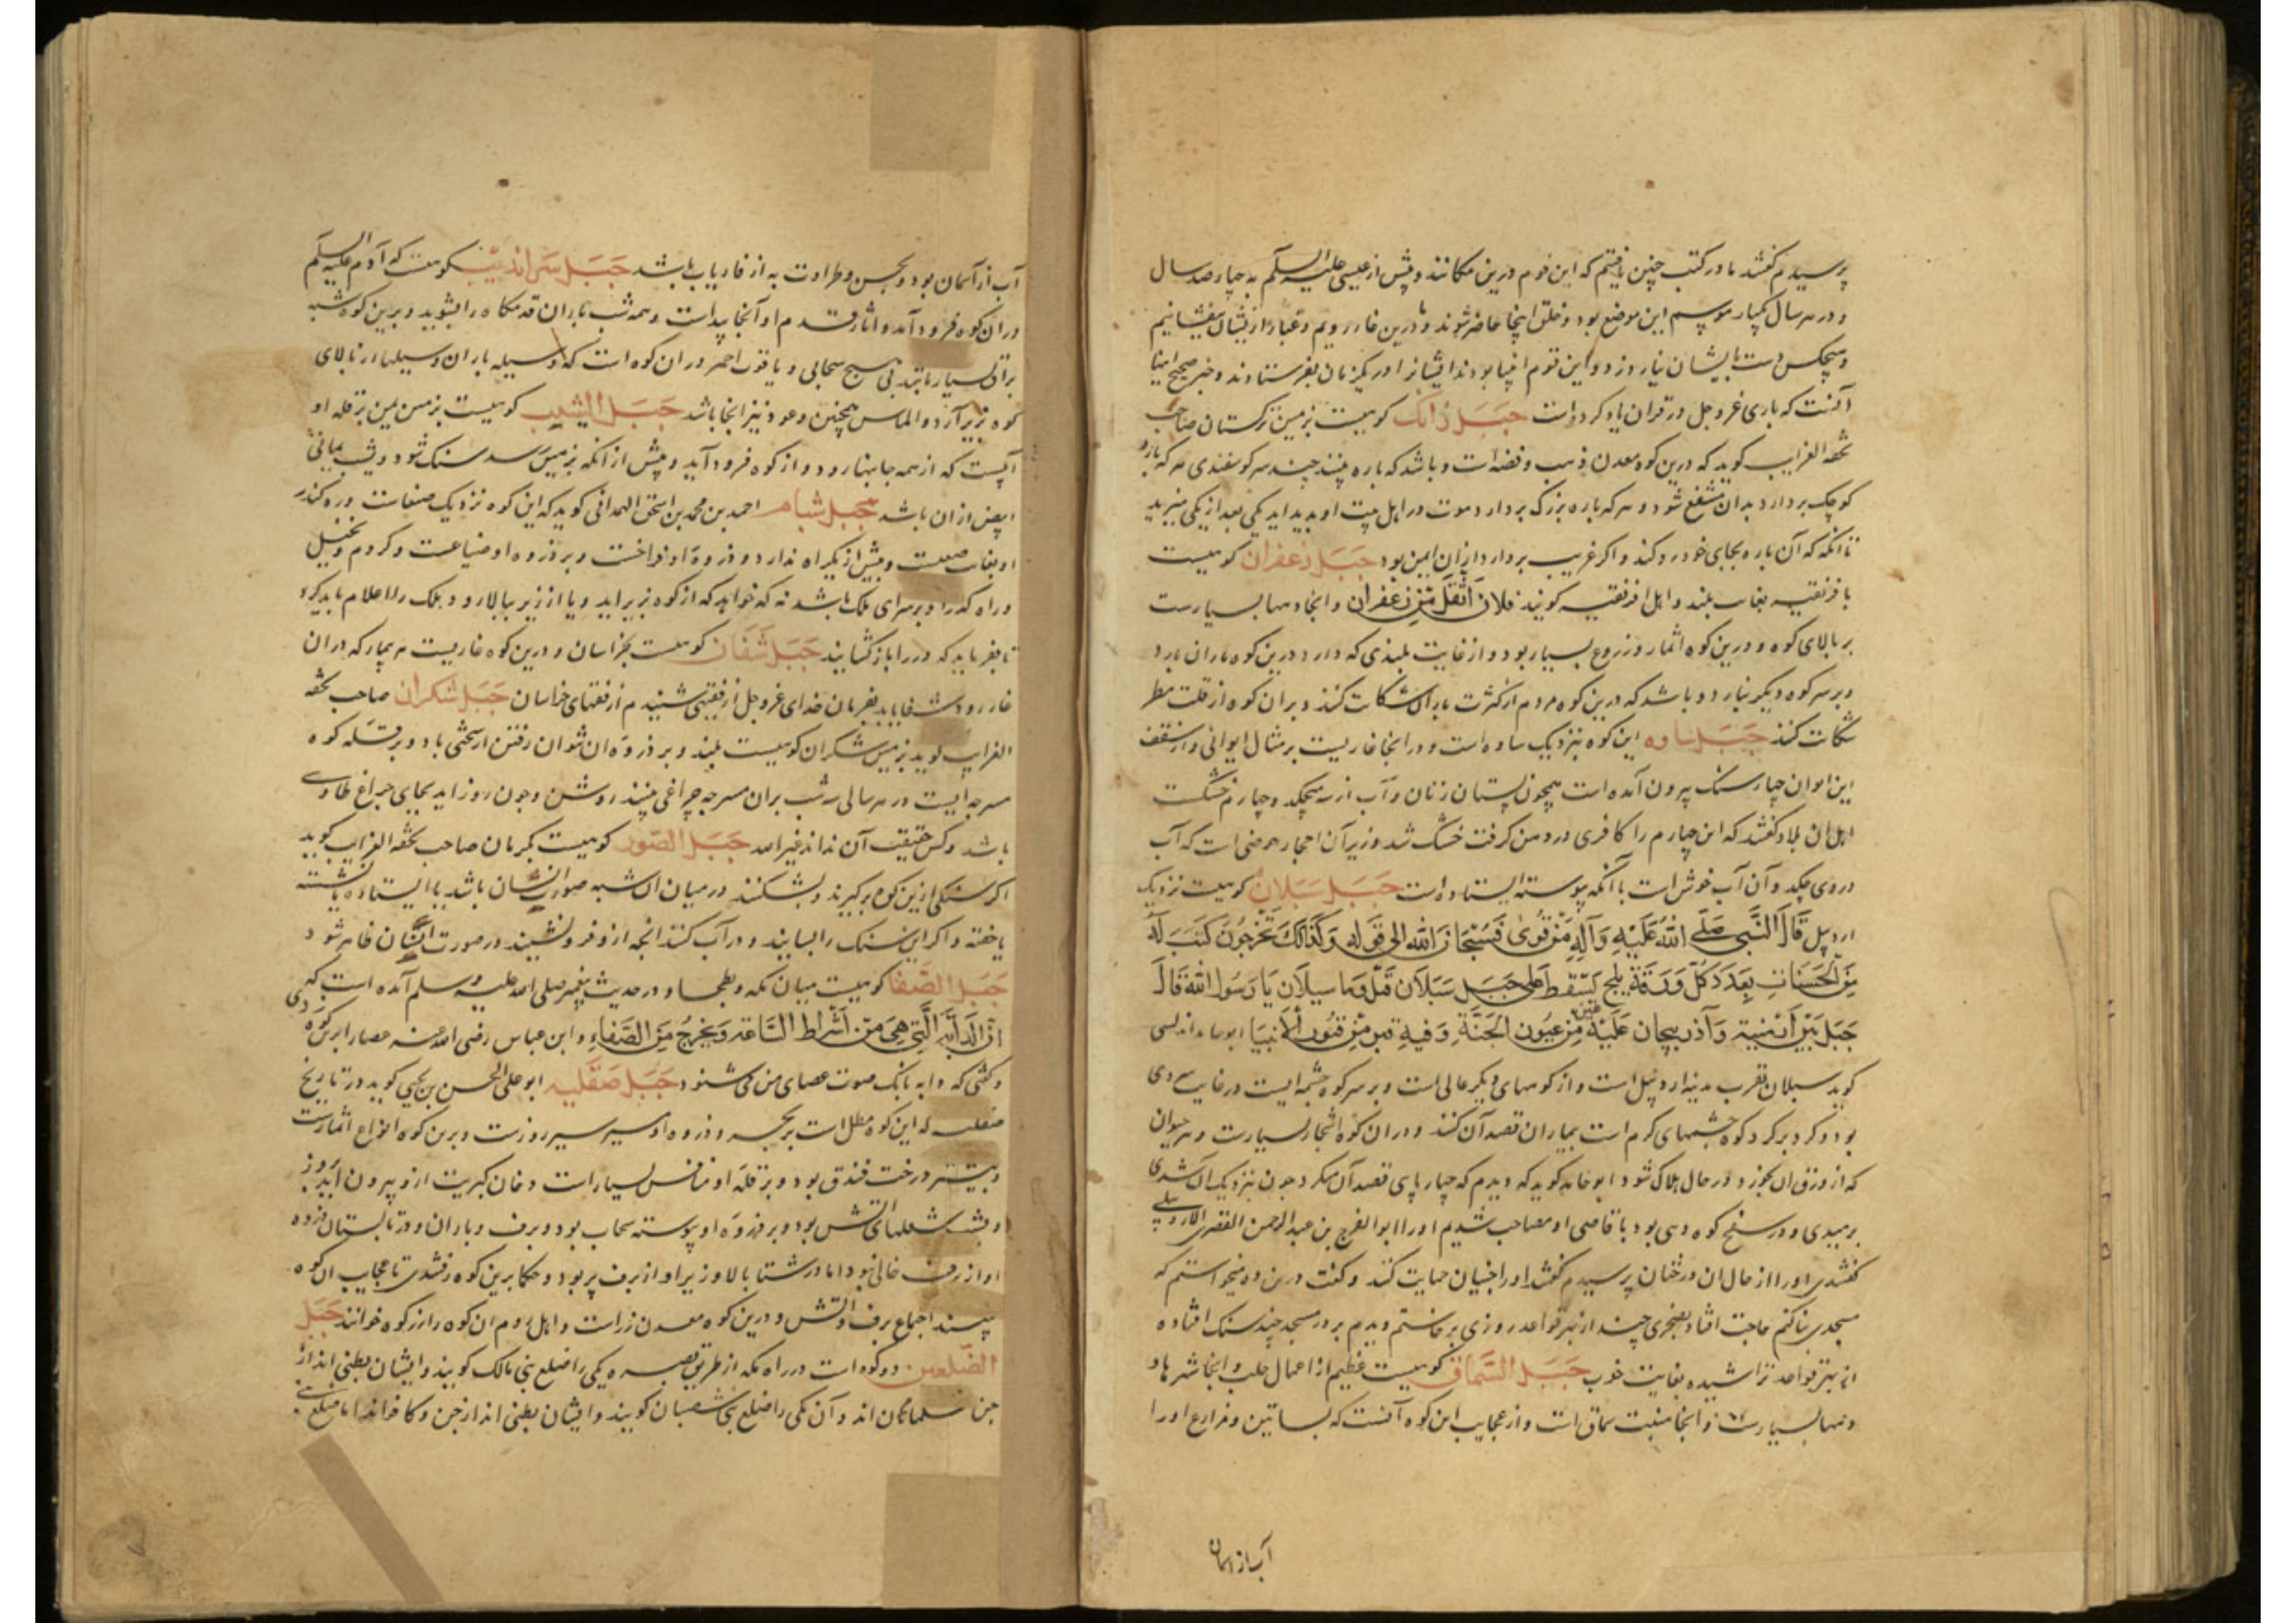 پرسیدم گفتند ما در کتب چنین یافتیم که این قوم درین مکانند و پیش از عیسی علیه السلم به چهار صد سال
و در هر سال یکبار موسم این موضع بود و خلق اینجا حاضر شوند و ما درین غار رویم و غبار از ایشان بیفشانیم
و هیچکس دست بایشان نیارد زد و این قوم انبیا بودند ایشانرا در یکزمان بفرستادند و خبر صحیح اینها
آنست که باری عز و جل در قران یاد کرده است جبل زانک کوهیست بزمین ترکستان صاحب
تحفه الغرایب کوید که درین کوه معدن ذهب و فضه است و باشد که باره بینند چند سر کوسفندی هر که باره
کوچک بردارد بدان منتفع شود و هر که باره بزرک بردارد موت در اهل بیت او بدید اید یکی بعد از یکی میرید
تا انکه که آن باره بجای خود رد کند و اکر غریب بردارد ازان ایمن بود جبل زعفران کوهیست
بافریقیه بغایت بلند و اهل افریقیه کویند فلان اثقل من زعفران و انجا دهها بسیارست
بر بالای کوه و درین کوه اثمار و زروع بسیار بود و از غایت بلندی که دارد درین کوه باران بارد
و بر سر کوه دیکر نبارد و باشد که درین کوه مردم از کثرت باران شکایت کنند و بران کوه از قلت مطر
شکایت کنند جبل ساوه این کوه بنزدیک ساوه است و در اینجا غاریست بر مثال ایوانی و از سقف
این ایوان چهار سنک بیرون آمده است همچون پستان زنان و آب از سه میچکد و چهارم خشکست
اهل ان بلاد کفتند که این چهارم را کافری در دهن کرفت خشک شد و زیر آن احجار حوضی است که آب
در وی چکد و آن آب خوش است با آنکه پیوسته ایستاده است جبل سبلان کوهیست نزدیک
اردبیل قال النبی صلی الله علیه وآله من قرئ فسبحان الله الی قوله وکذلک تخرجون کتب له
من الحسنات بعدد کل ورقة بلج یسقط علی جبل سبلان قیل وما سبلان یا رسول الله قال
جبل بین ارمنیة وآذربیجان علیه عین من عیون الجنة وفیه قبر من قبور الانبیا ابو حامد اندلسی
کوید سبلان بقرب مدینه اردبیل است و از کوههای دیکر عالی است و بر سر کوه چشمه ایست در غایت سردی
بود و کرد بر کرد کوه چشمهای کرم است بیماران قصد آن کنند و دران کوه اشجار بسیارست و هر حیوان
که از ورق ان بخورد در حال هلاک شود ابو حامد کوید که دیدم که چهار پای قصد آن میکرد چون نزدیک آن شدی
برمیدی و در سفح کوه دهی بود با قاضی او مصاحب شدیم او را ابو الفرج بن عبد الرحمن القصری الاردبیلی
کفتندی او را از حال ان درختان پرسیدم کفتند او را جنیان حمایت کنند و کفت درین ده میخواستم که
مسجدی بنا کنم حاجت افتاد بصخری چند از بهر قواعد روزی برخاستم دیدم بر در مسجد چند سنک افتاده
از بهر قواعد تراشیده بغایت خوب جبل السماق کوهیست عظیم از اعمال حلب و انجا شهرها و
دهها بسیارست و انجا منبت سماق است و از عجایب این کوه آنست که بساتین و مزارع او را
آب از آسمان
آب از آسمان بود و بحسن و طراوت به از فاریاب باشد جبل سراندیب کوهیست که آدم علیه السلم
دران کوه فرود آمد و اثار قدم او آنجا پیداست و همه شب باران قدمکاه را بشوید و برین کوه شبه
برق بسیار باشد بی هیچ سحابی و یاقوت احمر دران کوه است که وسیله باران و سیلها از بالای
کوه بزیر آرد و الماس همچنین و عود نیز انجا باشد جبل الشب کوهیست بزمین یمن بر قله او
آبیست که از همه جانبها رود و از کوه فرود آید و پیش از انکه بزمین رسد سنک شود و شب یمانی
ابیض ازان باشد جبل شبام احمد بن محمد بن اسحق الهمدانی کوید که این کوه نزدیک صنعاست و ره کذر
او بغایت صعبست و بیش از یکراه ندارد و ذروه او فراخست و بر ذروه او ضیاعست و کروم و نخیل
و راه کذر او بر سرای ملک باشد نه که خواهد که از کوه بزیر اید و یا از زیر ببالا رود ملک را اعلام باید کرد
تا بفرماید که در را باز کشایند جبل شقان کوهیست بخراسان و درین کوه غاریست هر بیمار که دران
غار رود شفا یابد بفرمان خدای عز و جل از فقیهی شنیدم از فقهای خراسان جبل شکران صاحب تحفه
الغرایب کوید بزمین شکران کوهیست بلند و بر ذروه ان نتوان رفتن از سختی باد و بر قله کوه
مسرجه ایست در هر سالی سه شب بران مسرجه چراغی بینند روشن و چون روز اید بجای چراغ طاوسی
باشد و کس حقیقت آن نداند غیر الله جبل الصور کوهیست بکرمان صاحب تحفه الغرایب کوید
اکر سنکی ازین کوه برکیرند و بشکنند در میان ان شبه صورت انسان باشد یا ایستاده یا نشسته
یا خفته و اکر این سنک را بسایند و در آب کنند انچه ازو فرو نشیند در صورت انسان ظاهر شود
جبل الصفا کوهیست میان مکه و بطحا و در حدیث پیغمبر صلی الله علیه وسلم آمده است که
ان الدابه التی هی من اشراط الساعة ویخرج من الصفا و ابن عباس رضی الله عنه عصا بر این کوه زدی
و کفتی که دابه بانک صوت عصای من می شنود جبل صقلیه ابو علی الحسن بن یحیی کوید در تاریخ
صقلیه که این کوه مطل است بر بحر و ذروه او سیر سه روزست و برین کوه انواع اثمارست
و بیشتر درخت فندق بود و بر قله او منافس بسیار است دخان کبریت ازو بیرون آید بروز
و بشب شعلهای اتش بود و بر ذروه او پیوسته سحاب بود و برف و باران و در تابستان ذروه
او از برف خالی نبود اما در شتا بالا و زیر او از برف پر بود و حکما برین کوه رفتندی تا عجایب ان کوه
بینند اجتماع برف و اتش و درین کوه معدن زر است و اهل روم ان کوه را زر کوه خوانند جبل
الضلعین دو کوه است در راه مکه از طریق بصره یکی را ضلع بنی مالک کویند و ایشان بطنی اند از
جن مسلمانان اند و آن یکی را ضلع بنی شیصبان کویند و ایشان بطنی اند از جن و کافراند اما ضلع بنی